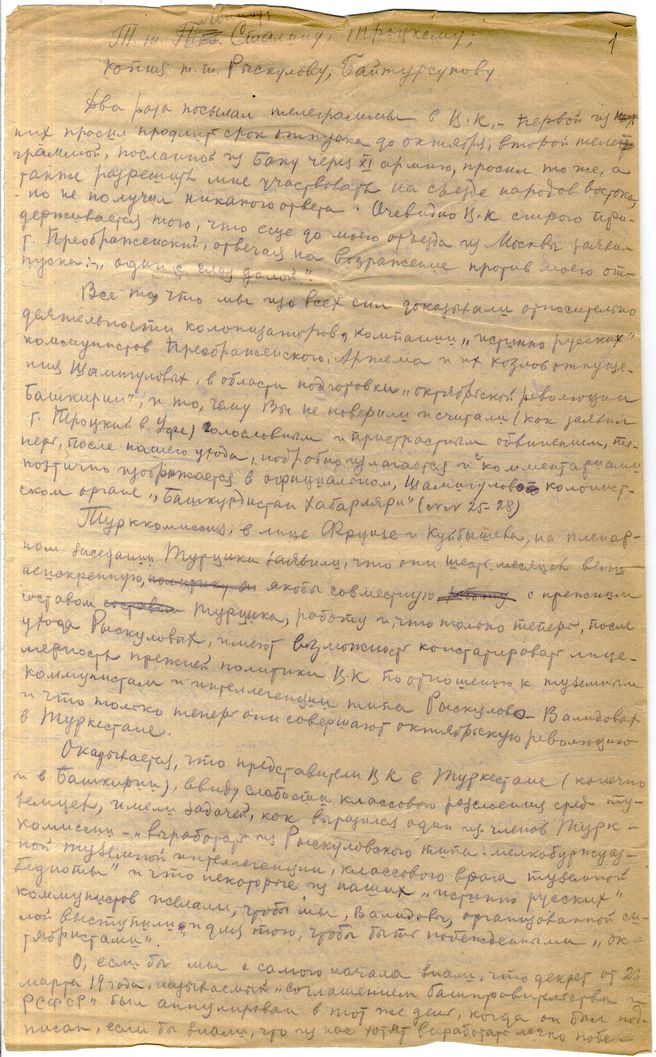 Ленину
Т.т. Сталину, Троцкому;
1
копия т.т. Рыскулову, Байтурсунову
Два раза посылал телеграммы в Ц.К., - первой из
них просил продлить срок отпуска до октября, второй теле-
граммой, посланной из Баку через XI армию, просил то же, а
также разрешить мне участвовать на съезде народов востока,
- но не получил никакого ответа. Очевидно Ц.К. строго при-
держивается того, что еще до моего отъезда из Москвы заявил
т. Преображенский, отвечая на возражение против моего от-
пуска: "один с глаз долой".
Все то, что мы изо всех сил доказывали относительно
деятельности колонизаторов, компании "истинно русских"
коммунистов Преображенского, Артема и их козлов отпуще-
ния Шамигуловых, в области подготовки "октябрьской революции
Башкирии" и то, чему Вы не поверили и считали (как заявил
т. Троцкий в Уфе) голословным и пристрастным обвинением, те-
перь, после нашего ухода, подробно излагается и с комментариями
поэтично изображается в официальном, Шамигуловско колонист-
ском органе "Башкурдистан Хабарляри" (№№ 25-28)
Турккомиссия, в лице Фрунзе и Куйбышева, на пленар-
ном заседании Турцика заявили, что они шесть месяцев вели
неискреннюю, якобы совместную с прежним
составом Турцика, работу и, что только теперь, после
ухода Рыскуловых, имеют возможность констатировать лице-
мерность прежней политики Ц.К. по отношению к туземным
коммунистам и интеллегенции типа Рыскулова - Валидова
и что только теперь они совершают октябрьскую революцию
в Туркестане.
Оказывается, что представители Ц.К. в Туркестане (конечно
и в Башкирии), ввиду слабости классового расслоения среди ту-
земцев, имели задачей, как выразился один из членов Турк-
комиссии - "выработать из Рыскуловского типа - мелкобуржуаз-
ной туземной интеллегенции, классового врага туземной
бедноты" и что некоторые из наших "истинно русских"
коммунистов желали, чтобы мы, Валидовы, организованной си-
лой выступили для того, чтобы быть побежденными "ок-
тябристами".
О, если бы мы с самого начала знали, что декрет от 23
марта 19 года, называемый "соглашением башправительства и
РСФСР" был аннулирован в тот же день, когда он был под-
писан, если бы знали, что из нас хотят выработать легко побе-